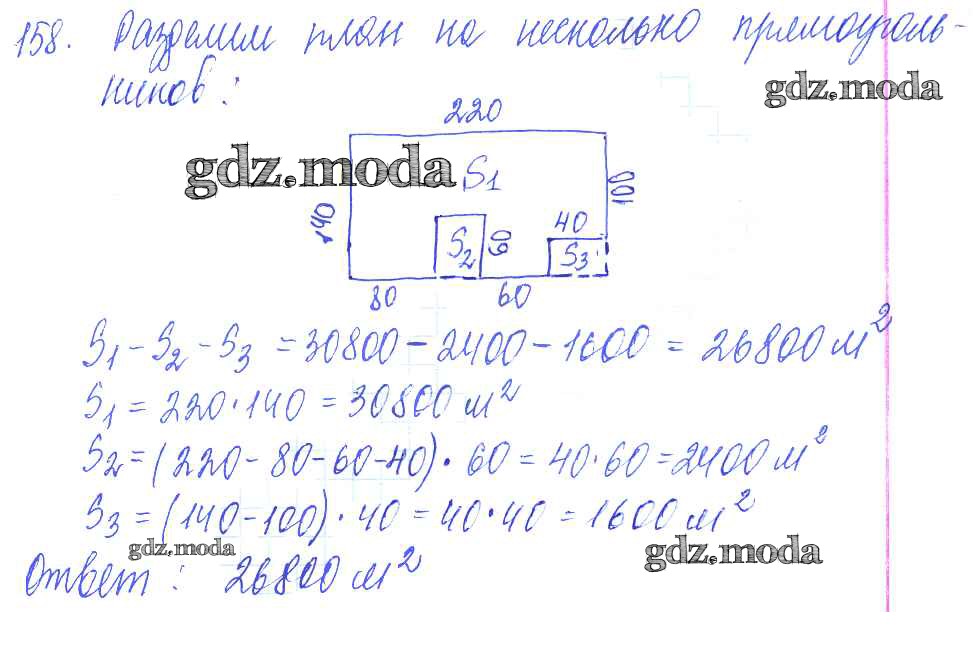 158. Разделим план на несколько прямоуголь-
gdz.moda
ников:
220
gdz.moda
S1
100
140
40
S2
60
S3
80
60
S1 - S2 - S3 = 30800 - 2400 - 1600 = 26800 м²
S1 = 220 · 140 = 30800 м²
S2 = (220 - 80 - 60 - 40) · 60 = 40 · 60 = 2400 м²
S3 = (140 - 100) · 40 = 40 · 40 = 1600 м²
gdz.moda
gdz.moda
Ответ: 26800 м²